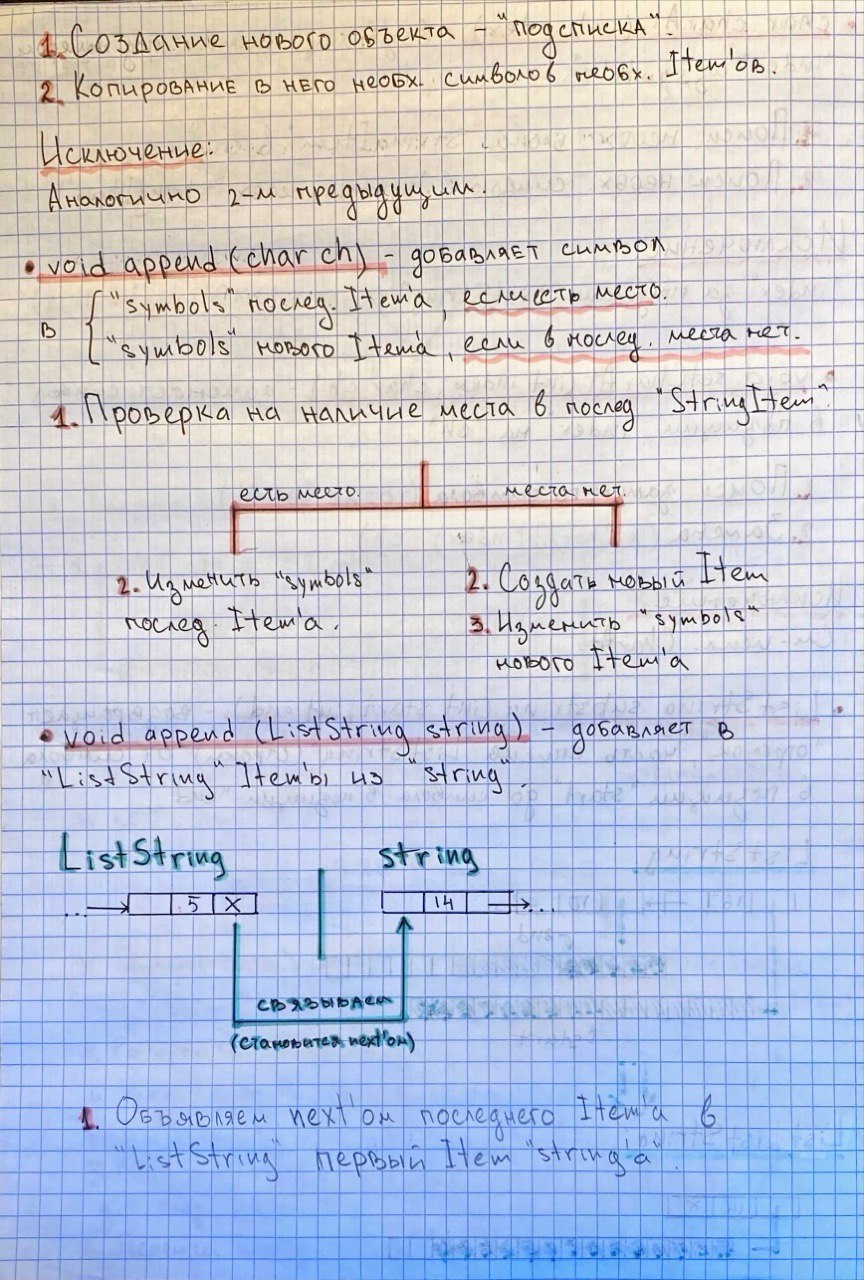 1. Создание нового объекта - "подсписка".
2. Копирование в него необх. символов необх. Item'ов.
Исключение:
Аналогично 2-м предыдущим.
• void append (char ch) - добавляет символ
в
"symbols" послед. Item'а, если есть место.
"symbols" нового Item'а, если в послед. места нет.
1. Проверка на наличие места в послед "StringItem".
есть место. места нет.
2. Изменить "symbols"
послед. Item'а.
2. Создать новый Item
3. Изменить "symbols"
нового Item'а
• void append (ListString string) - добавляет в
"ListString" Item'ы из "string".
ListString string
... 5 X 14 ...
связываем
(становится next'ом)
1. Объявляем next'ом последнего Item'а в
"ListString" первый Item "string'а".